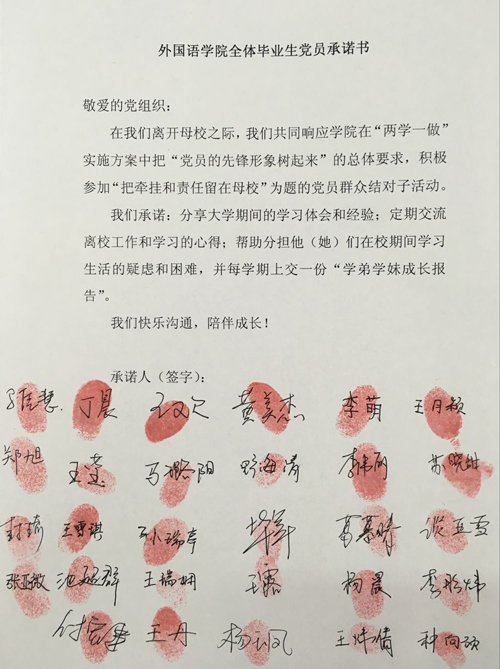 外国语学院全体毕业生党员承诺书
敬爱的党组织：
在我们离开母校之际，我们共同响应学院在“两学一做”
实施方案中把“党员的先锋形象树起来”的总体要求，积极
参加“把牵挂和责任留在母校”为题的党员群众结对子活动。
我们承诺：分享大学期间的学习体会和经验；定期交流
离校工作和学习的心得；帮助分担他（她）们在校期间学习
生活的疑虑和困难，并每学期上交一份“学弟学妹成长报
告”。
我们快乐沟通，陪伴成长！
承诺人（签字）：
丁晨 黄美杰 李萌 王月颖
郑旭 王莹 马璐阳 苏晓甜
王雪琪 葛慕晴 谈亚雪
张亚微 王瑞珊 王露 杨晨
王丹 杨凤